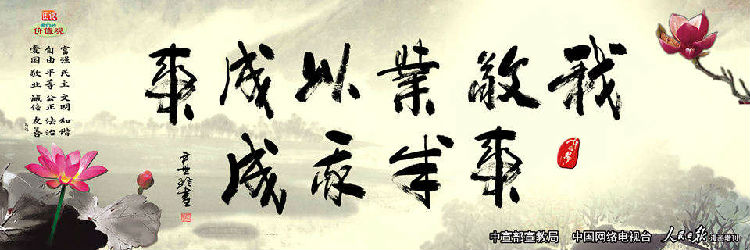 我们的
价值观
富强 民主 文明 和谐
自由 平等 公正 法治
爱国 敬业 诚信 友善
我敬業以成事
事業亦成
中宣部宣教局 中国网络电视台 人民日报